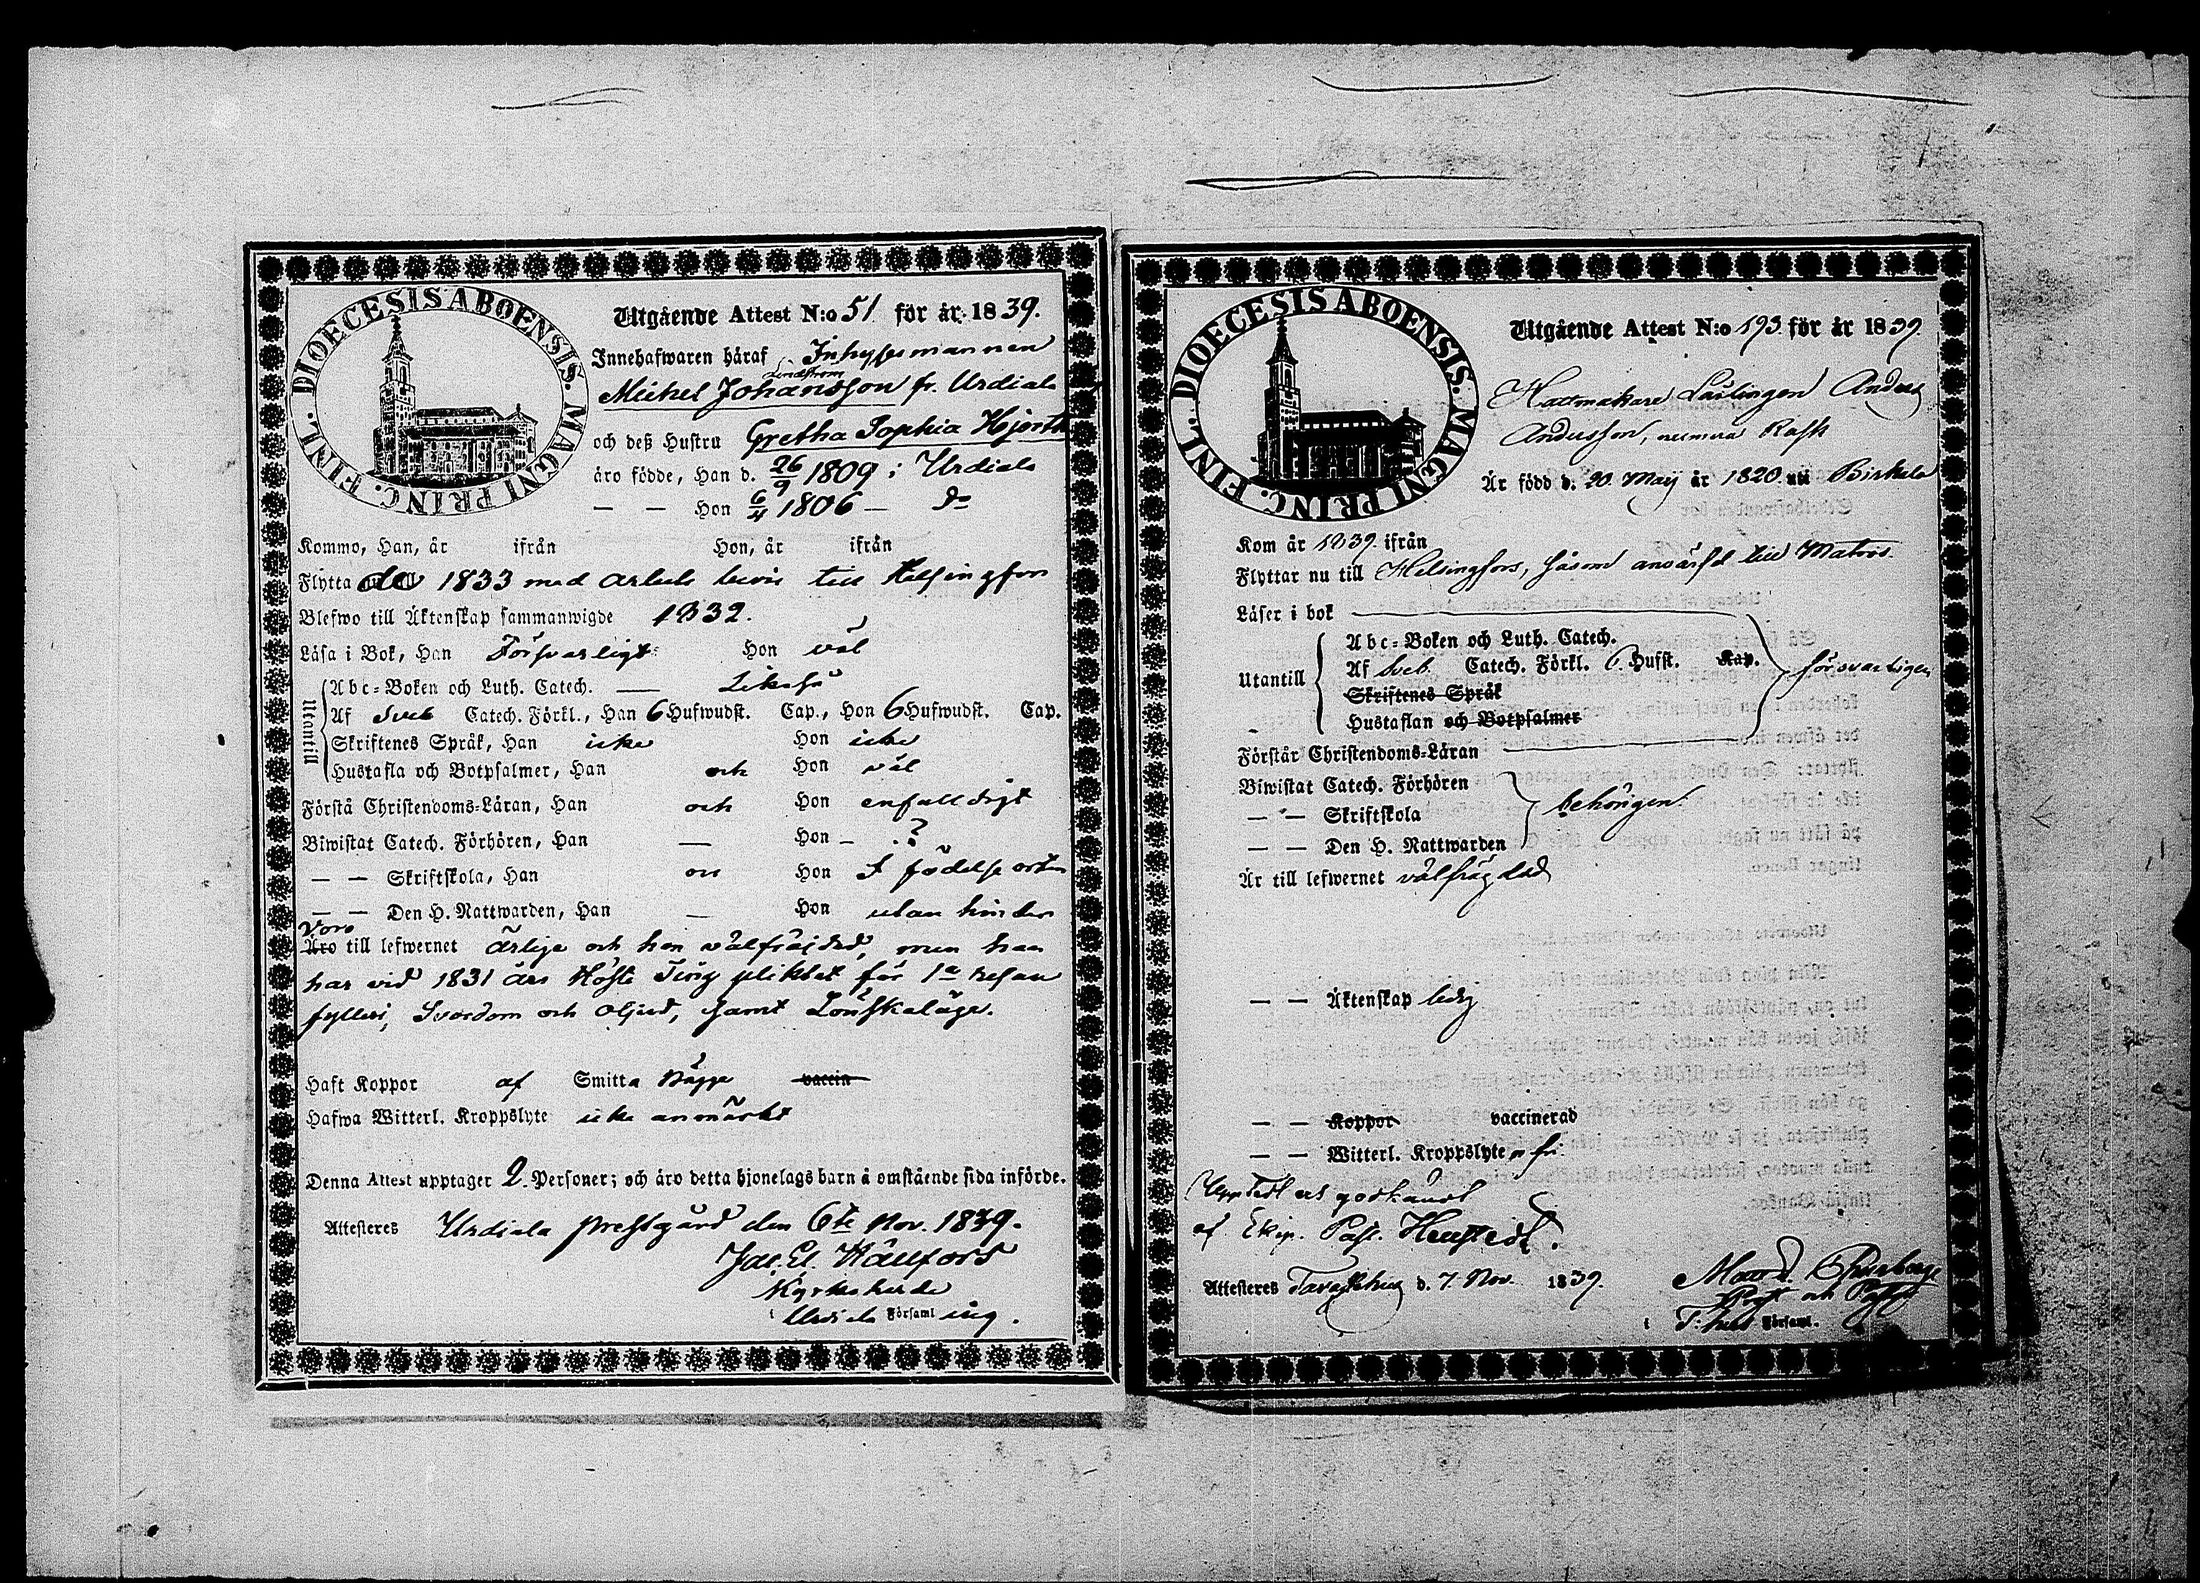 DIOECESIS ABOENSIS. MAGNI PRINC. FINL.
Utgående Attest N:o 51 för år 1839.
Innehafwaren häraf Inhysesmannen
Lindström
Michel Johansson fr. Urdiala
och deß Hustru Gretha Sophia Hjorth
äro födde, Han d. 26/9 1809 i Urdiala
— — Hon 6/4 1806 — do
Kommo, Han, år ifrån Hon, år ifrån
Flytta de 1833 med arbets bevis till Helsingfors
Blefwo till Äktenskap sammanwigde 1832.
Läsa i Bok, Han Försvarligt Hon väl
Utantill
Abc-Boken och Luth. Catech. — Likaså
Af Sveb Catech. Förkl., Han 6 Hufwudst. Cap., Hon 6 Hufwudst. Cap.
Skriftenes Språk, Han icke Hon icke
Hustafla och Botpsalmer, Han och Hon väl
Förstå Christendoms-Läran, Han och Hon enfaldigt
Biwistat Catech. Förhören, Han — Hon — ?
— — Skriftskola, Han och Hon I födelse orten
— — Den H. Nattwarden, Han — Hon utan hinder
Voro
Äro till lefwernet ärlige och hon välfräjdad, men han
har vid 1831 års Höste Ting pliktat för 1a resan
fylleri, Svordom och oljud, samt Lönskaläge.
Haft Koppor af Smitta Bägge vaccin
Hafwa Witterl. Kroppslyte icke anmärkt
Denna Attest upptager 2 Personer; och äro detta hjonelags barn å omstående sida införde.
Attesteres Urdiala prestgård den 6te Nov. 1839.
Jac. El.
Kyrkoherde
i Urdiala Församling.
DIOECESIS ABOENSIS. MAGNI PRINC. FINL.
Utgående Attest N:o 193 för år 1839
Hattmakare Lärlingen Anders
Andersson, numera Rask
Är född d. 20 Maij år 1820 uti Birkala
Kom år 1839 ifrån
Flyttar nu till Helsingfors, såsom till Matros.
Läser i bok
Utantill
Abc-Boken och Luth. Catech.
Af Sveb. Catech. Förkl. 6. Hufst. Kap. försvarligen
Skriftenes Språk
Hustaflan och Botpsalmer
Förstår Christendoms-Läran
Biwistat Catech. Förhören
— — Skriftskola behörigen
— — Den H. Nattwarden
Är till lefwernet välfrägdad
— — Äktenskap ledig
— — Koppor vaccinerad
— — Witterl. Kroppslyte fri.
godkändt
af Ekip. Past.
Attesteres Tavastehus d. 7. Nov. 1839.
Prost och
i T:hus Församl.